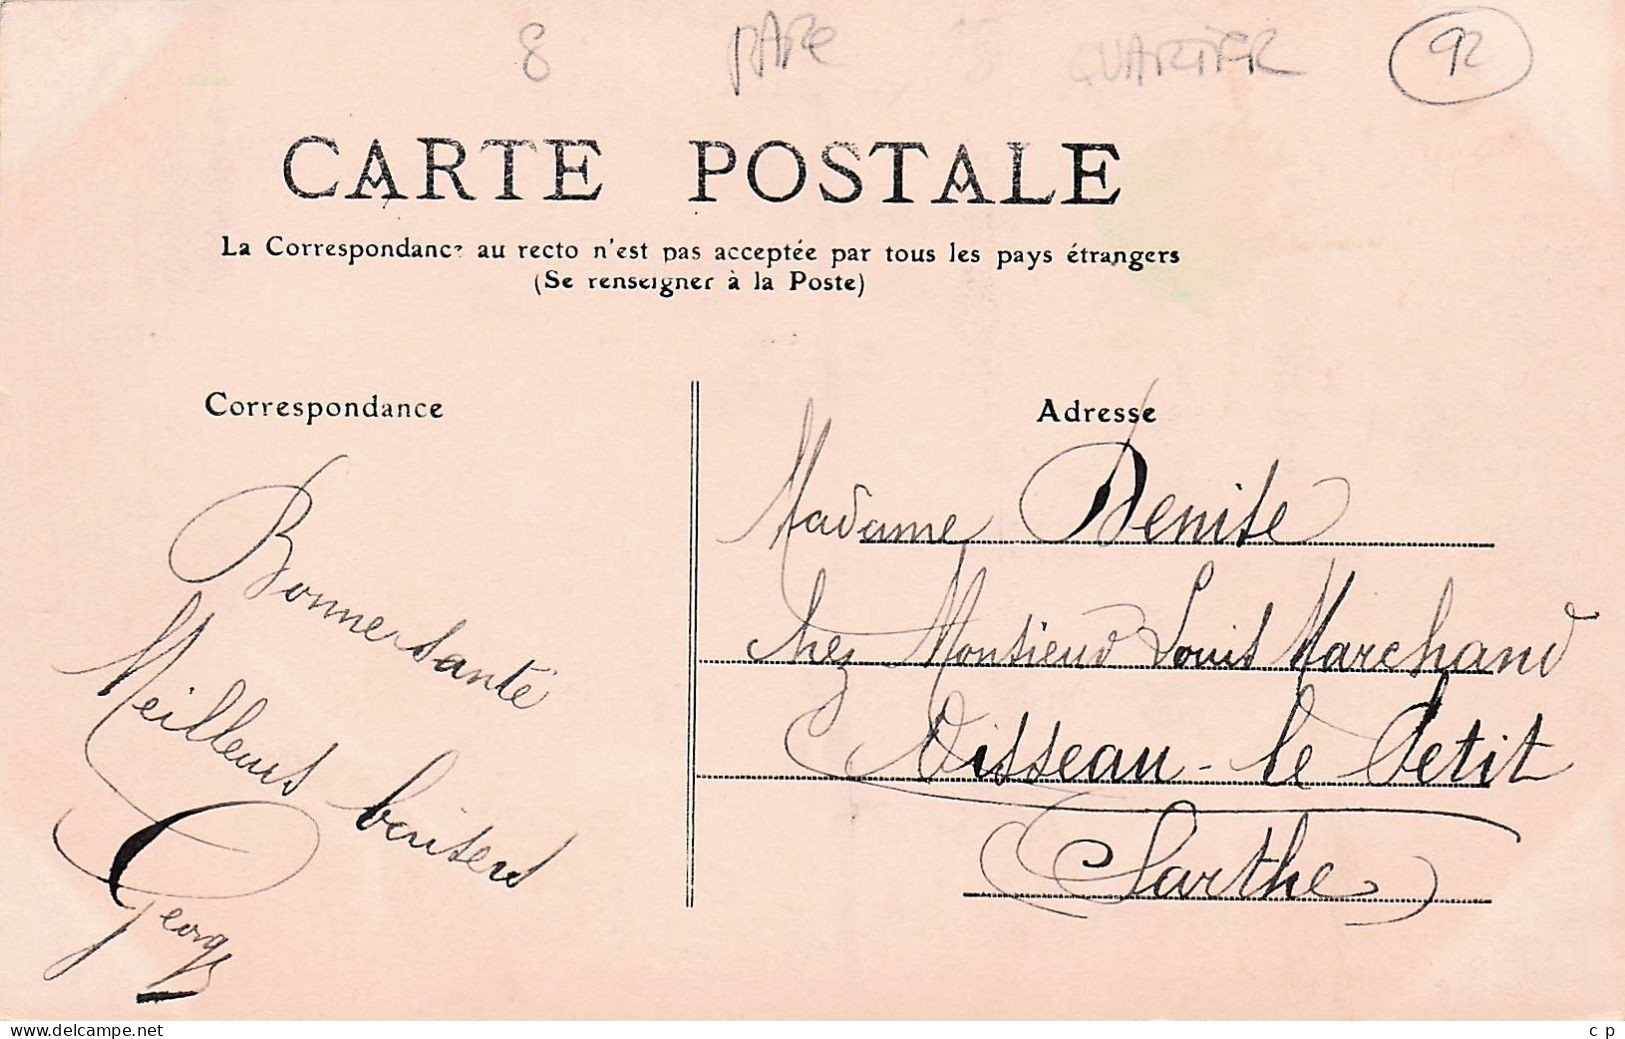 8 RARE QUARTIER 92
CARTE POSTALE
La Correspondance au recto n'est pas acceptée par tous les pays étrangers
(Se renseigner à la Poste)
Correspondance
Bonne santé
Meilleurs baisers
Georges
Adresse
Madame Denise
chez Monsieur Louis Marchand
Oisseau-le Petit
Sarthe
www.delcampe.net
c p